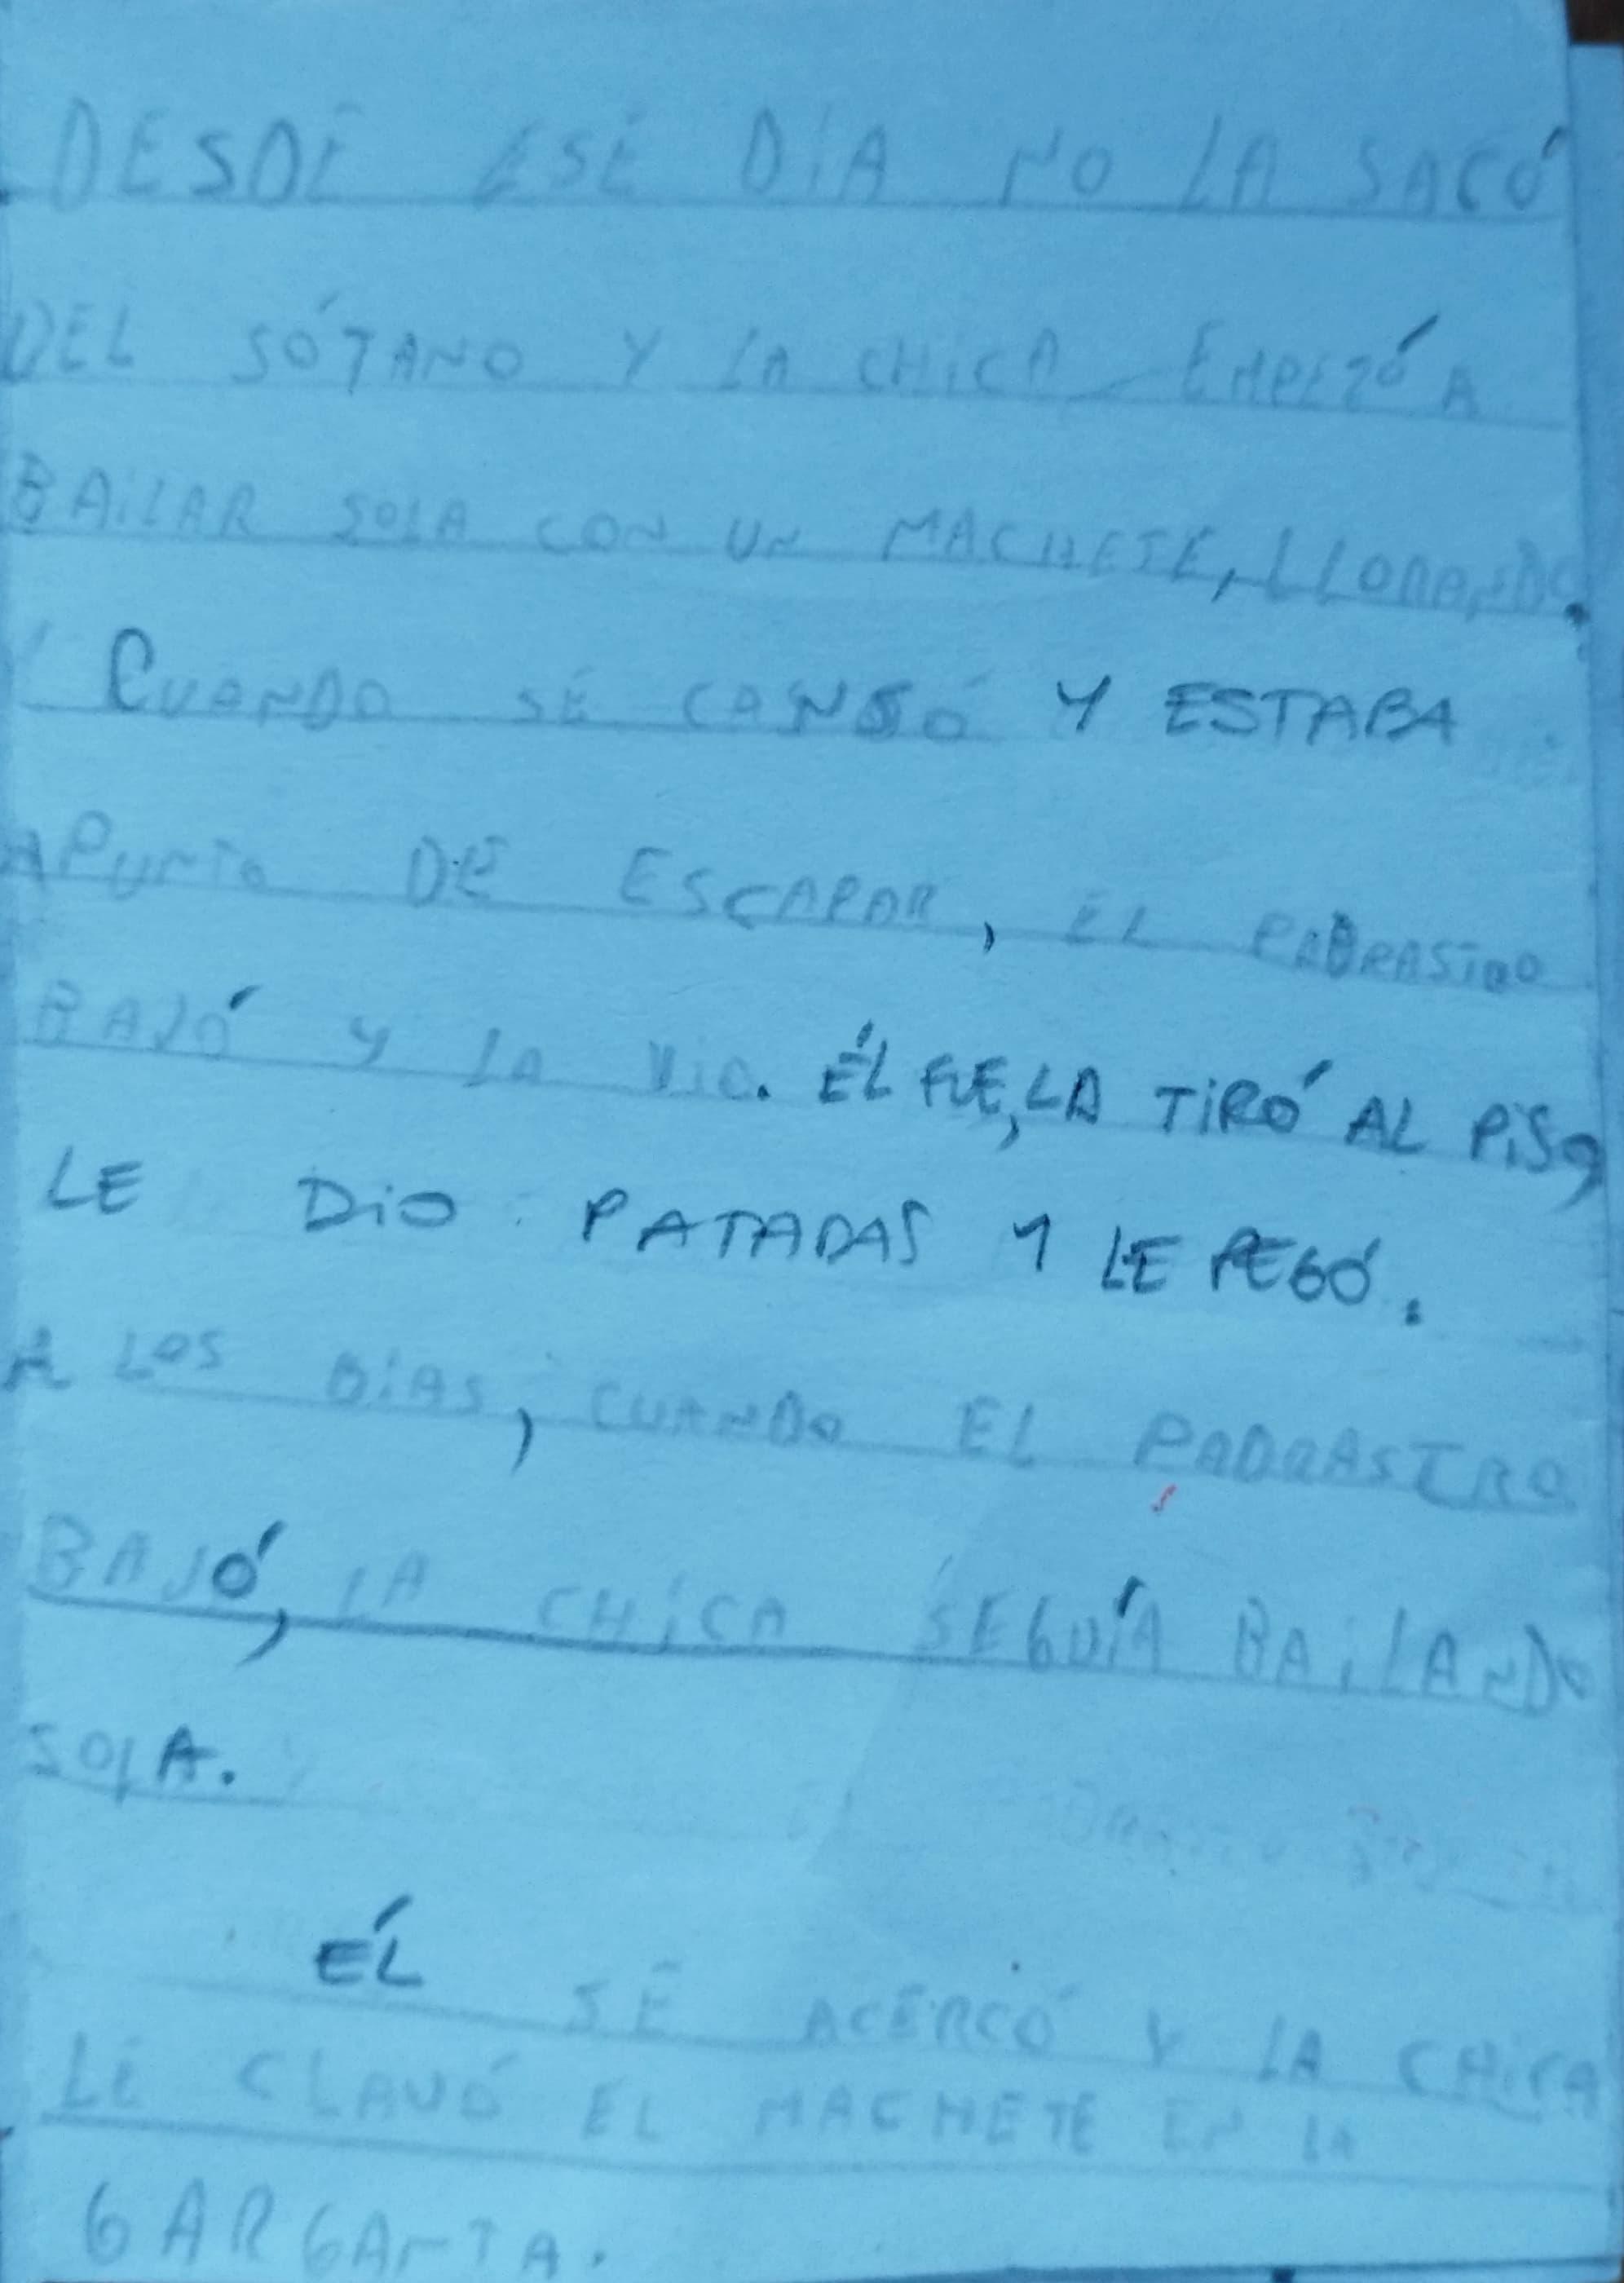 DESDE ESE DÍA NO LA SACÓ
DEL SÓTANO Y LA CHICA EMPEZÓ A
BAILAR SOLA CON UN MACHETE, LLORANDO.
CUANDO SE CANSÓ Y ESTABA
APUNTO DE ESCAPAR, EL PADRASTRO
BAJÓ Y LA VIO. ÉL FUE, LA TIRÓ AL PISO,
LE DIO PATADAS Y LE PEGÓ.
A LOS DÍAS, CUANDO EL PADRASTRO
BAJÓ, LA CHICA SEGUÍA BAILANDO
SOLA.
ÉL SE ACERCÓ Y LA CHICA
LE CLAVÓ EL MACHETE EN LA
GARGANTA.